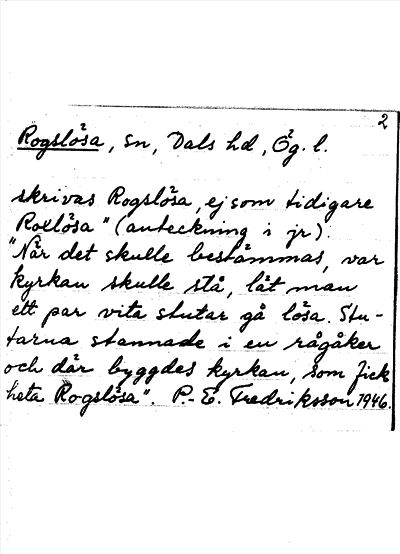 2
Rogslösa, sn, Dals hd, Ög. l.
skrivas Rogslösa, ej som tidigare
Roxlösa" (anteckning i jr).
"När det skulle bestämmas, var
kyrkan skulle stå, lät man
ett par vita stutar gå lösa. Stu-
tarna stannade i en rågåker
och där byggdes kyrkan, som fick
heta Rogslösa". P.-E. Fredriksson 1946.